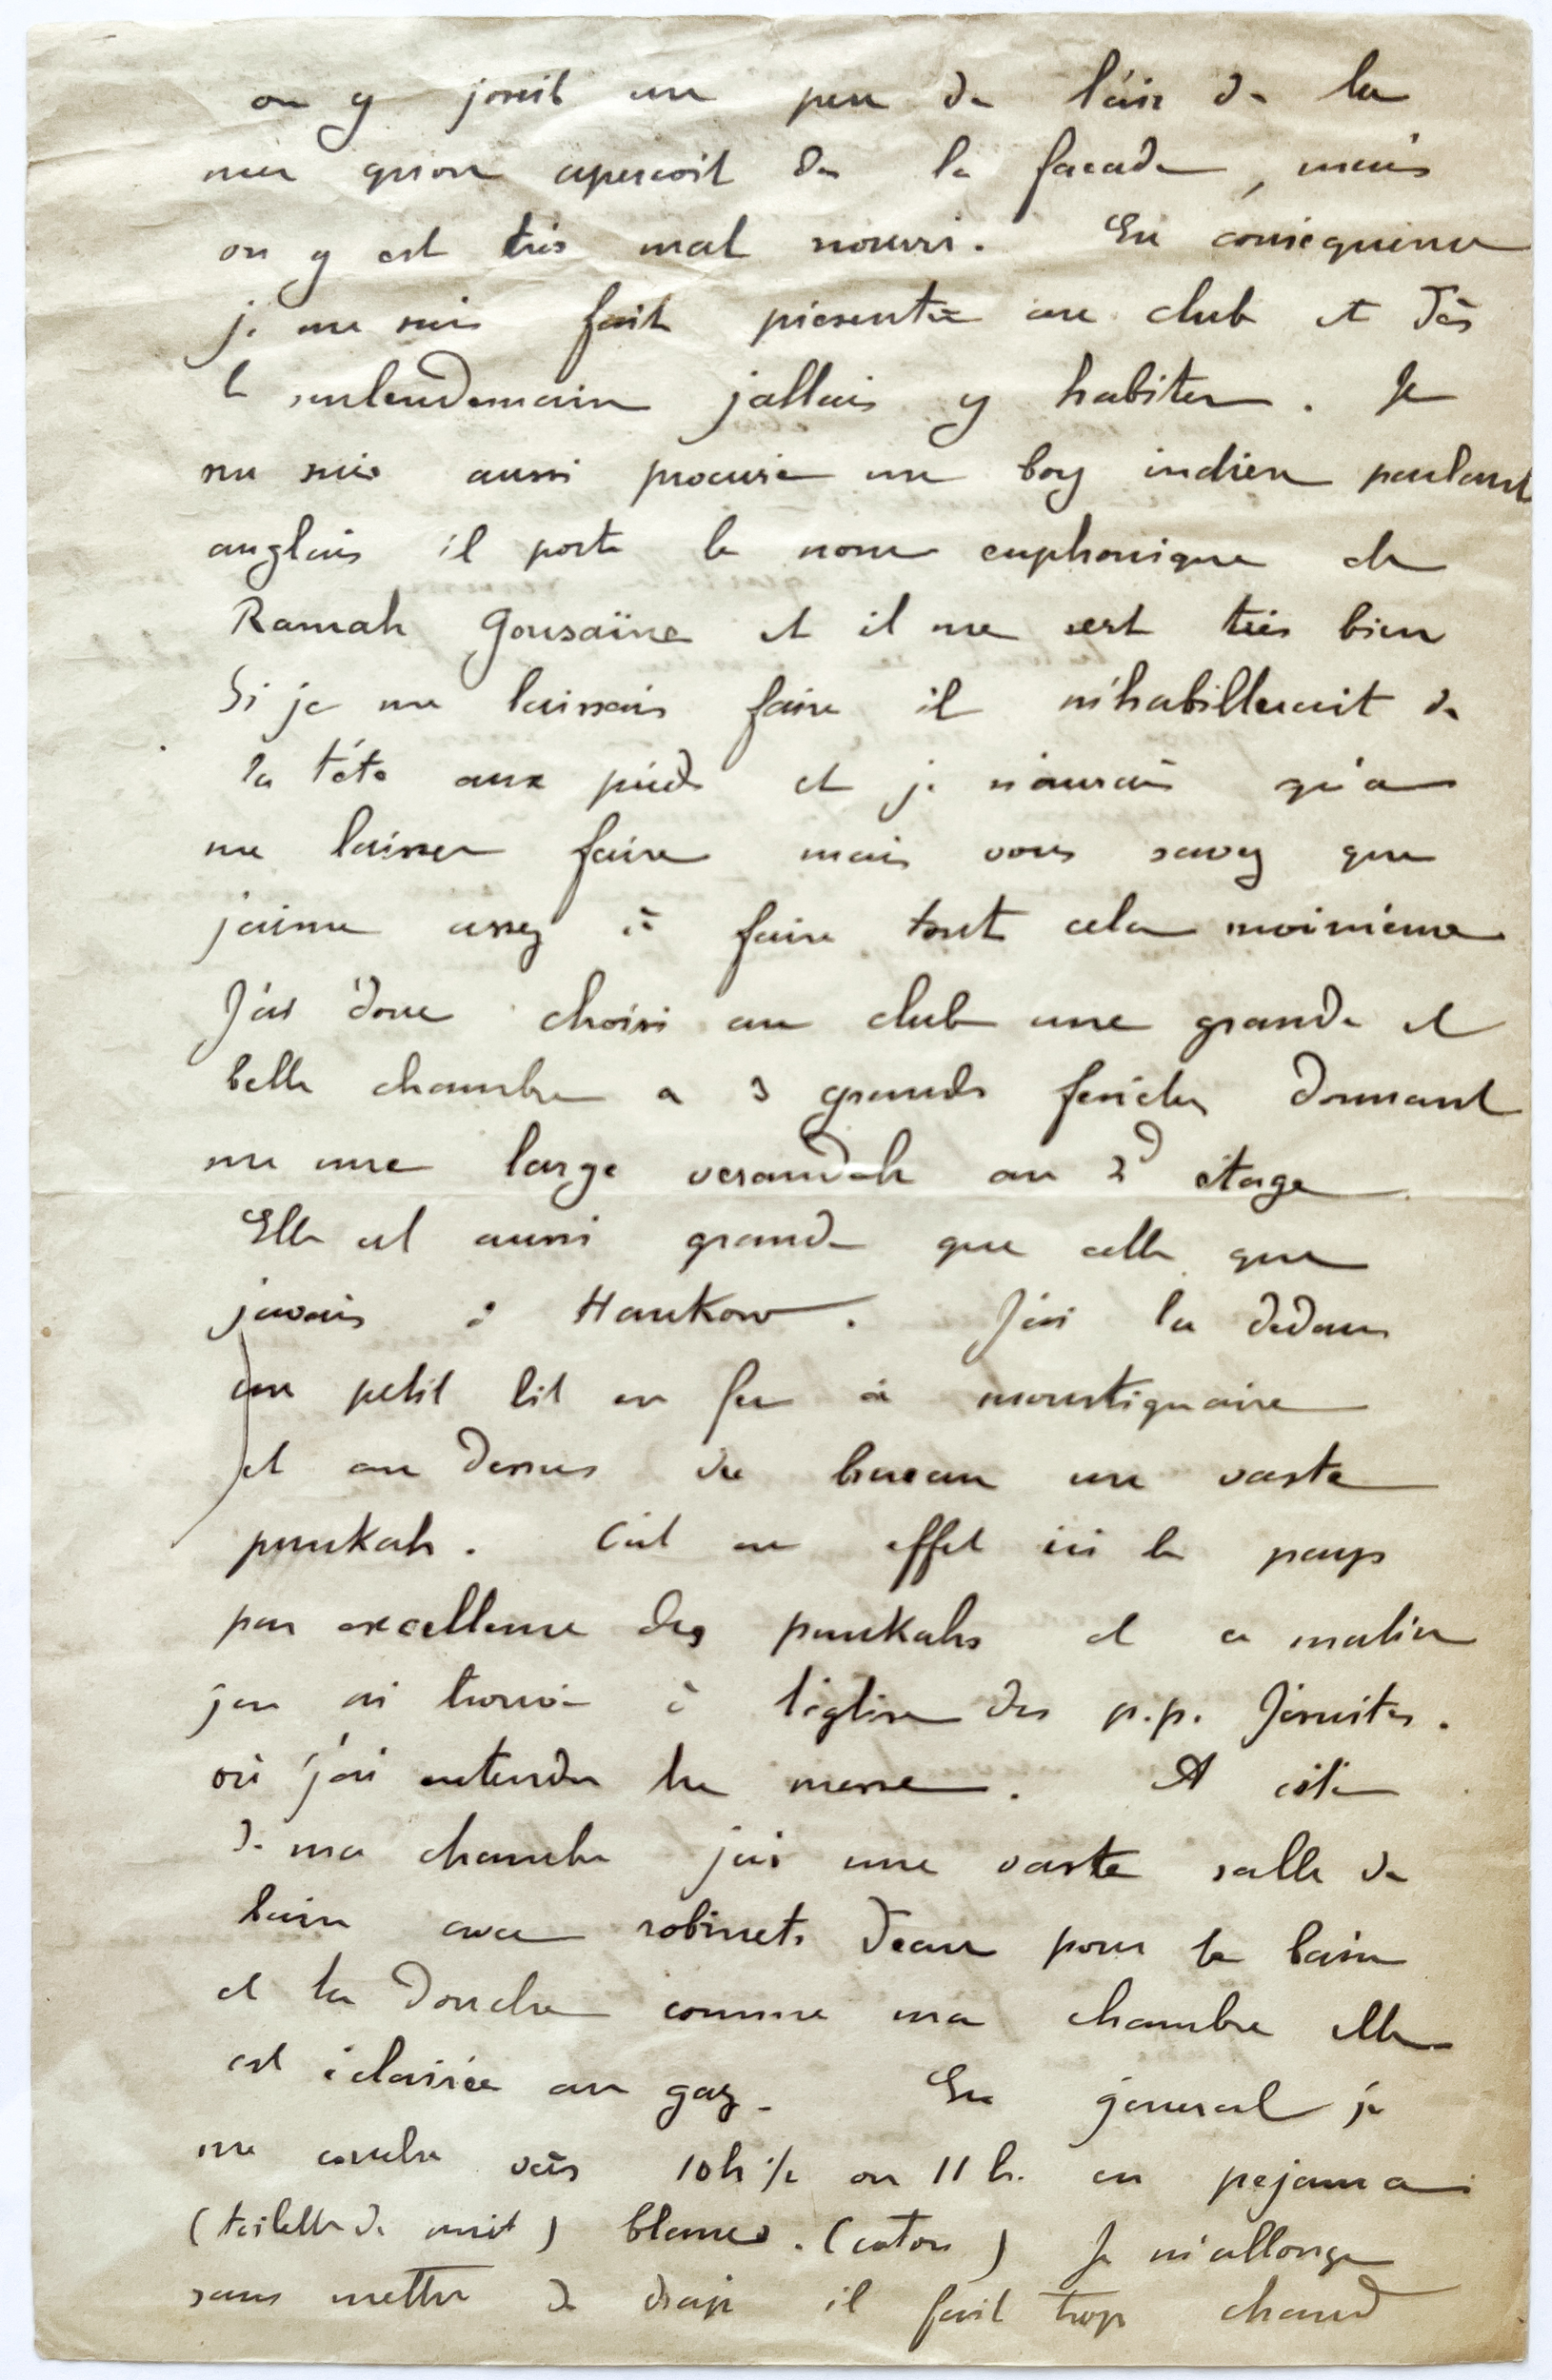 on y jouit un peu de l'air de la
mer qu'on apercoit de la facade, mais
on y est très mal nourri. En conséquence
je me suis fait présenter au club et dès
le surlendemain j'allais y habiter. Je
me suis aussi procuré un boy indien parlant
anglais il porte le nom euphonique de
Ramah Gousaïne et il me sert très bien
Si je me laissais faire il m'habillerait de
la tête aux pieds et je n'aurais qu'a
me laisser faire mais vous savez que
j'aime assez à faire tout cela moi même
J'ai donc choisi au club une grande et
belle chambre a 3 grandes fenêtres donnant
sur une large verandah au 2d étage
Elle est aussi grande que celle que
j'avais à Hankow. J'ai la dedans
un petit lit en fer à moustiquaire
et au dessus du bureau un vaste
punkah. C'est en effet ici le pays
par excellence des punkahs et ce matin
j'en ai trouvé à l'église des p.p. Jésuites.
où j'ai entendu la messe. A côté
de ma chambre j'ai une vaste salle de
bain avec robinets d'eau pour le bain
et la douche comme ma chambre elle
est éclairée au gaz. En general je
me couche vers 10h ½ ou 11 h. en pejama
(toilette de nuit) blanc. (coton) Je m'allonge
sans mettre de drap il fait trop chaud